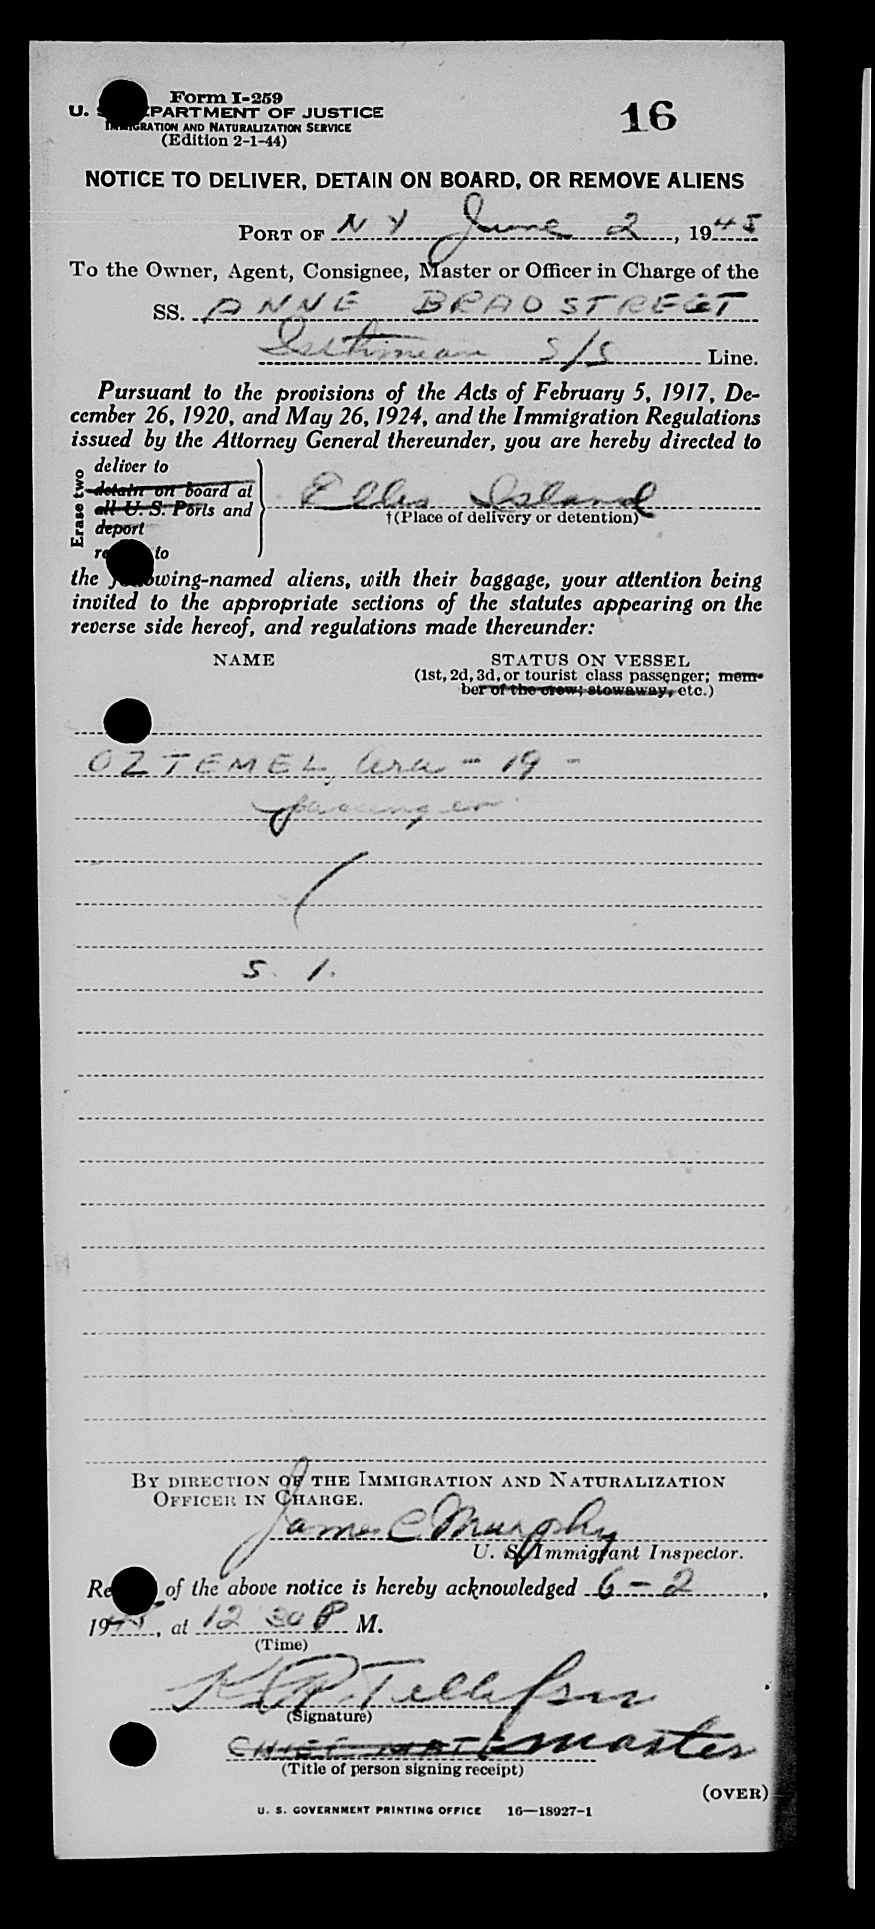 Form I-259
16
U. S. DEPARTMENT OF JUSTICE
IMMIGRATION AND NATURALIZATION SERVICE
(Edition 2-1-44)
NOTICE TO DELIVER, DETAIN ON BOARD, OR REMOVE ALIENS
PORT OF N Y June 2, 1945
To the Owner, Agent, Consignee, Master or Officer in Charge of the
SS. ANNE BRADSTREET
Isthmian S/S Line.
Pursuant to the provisions of the Acts of February 5, 1917, De-
cember 26, 1920, and May 26, 1924, and the Immigration Regulations
issued by the Attorney General thereunder, you are hereby directed to
Erase two
deliver to
detain on board at
all U. S. Ports and
deport
to
Ellis Island
†(Place of delivery or detention)
the following-named aliens, with their baggage, your attention being
invited to the appropriate sections of the statutes appearing on the
reverse side hereof, and regulations made thereunder:
NAME STATUS ON VESSEL
(1st, 2d, 3d, or tourist class passenger; mem-
ber of the crew; stowaway, etc.)
OZTEMEL, Ara - 19 -
passenger
(
S. 1.
BY DIRECTION OF THE IMMIGRATION AND NATURALIZATION
OFFICER IN CHARGE.
James C Murphy
U. S. Immigrant Inspector.
Re of the above notice is hereby acknowledged 6 - 2,
1945, at 12 30 P M.
(Time)
Tellefsen
(Signature)
CHIEF MATE Master
(Title of person signing receipt)
(OVER)
U. S. GOVERNMENT PRINTING OFFICE 16—18927-1